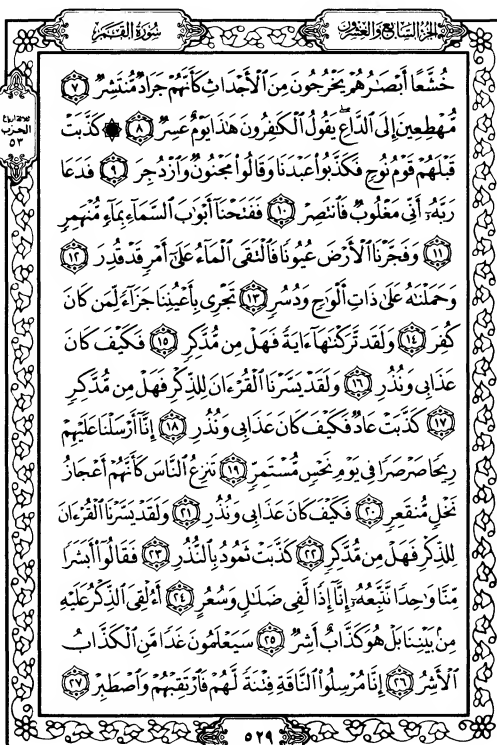 سُورَةُ القَمَر
الجُزْءُ السَّابِعُ وَالعِشْرُونَ
ثلاثة أرباع
الحزب
٥٣
خُشَّعًا أَبْصَٰرُهُمْ يَخْرُجُونَ مِنَ ٱلْأَجْدَاثِ كَأَنَّهُمْ جَرَادٌ مُّنتَشِرٌ ٧
مُّهْطِعِينَ إِلَى ٱلدَّاعِ ۖ يَقُولُ ٱلْكَٰفِرُونَ هَٰذَا يَوْمٌ عَسِرٌ ٨ ۞ كَذَّبَتْ
قَبْلَهُمْ قَوْمُ نُوحٍ فَكَذَّبُوا۟ عَبْدَنَا وَقَالُوا۟ مَجْنُونٌ وَٱزْدُجِرَ ٩ فَدَعَا
رَبَّهُۥٓ أَنِّى مَغْلُوبٌ فَٱنتَصِرْ ١٠ فَفَتَحْنَآ أَبْوَٰبَ ٱلسَّمَآءِ بِمَآءٍ مُّنْهَمِرٍ
١١ وَفَجَّرْنَا ٱلْأَرْضَ عُيُونًا فَٱلْتَقَى ٱلْمَآءُ عَلَىٰٓ أَمْرٍ قَدْ قُدِرَ ١٢
وَحَمَلْنَٰهُ عَلَىٰ ذَاتِ أَلْوَٰحٍ وَدُسُرٍ ١٣ تَجْرِى بِأَعْيُنِنَا جَزَآءً لِّمَن كَانَ
كُفِرَ ١٤ وَلَقَد تَّرَكْنَٰهَآ ءَايَةً فَهَلْ مِن مُّدَّكِرٍ ١٥ فَكَيْفَ كَانَ
عَذَابِى وَنُذُرِ ١٦ وَلَقَدْ يَسَّرْنَا ٱلْقُرْءَانَ لِلذِّكْرِ فَهَلْ مِن مُّدَّكِرٍ
١٧ كَذَّبَتْ عَادٌ فَكَيْفَ كَانَ عَذَابِى وَنُذُرِ ١٨ إِنَّآ أَرْسَلْنَا عَلَيْهِمْ
رِيحًا صَرْصَرًا فِى يَوْمِ نَحْسٍ مُّسْتَمِرٍّ ١٩ تَنزِعُ ٱلنَّاسَ كَأَنَّهُمْ أَعْجَازُ
نَخْلٍ مُّنقَعِرٍ ٢٠ فَكَيْفَ كَانَ عَذَابِى وَنُذُرِ ٢١ وَلَقَدْ يَسَّرْنَا ٱلْقُرْءَانَ
لِلذِّكْرِ فَهَلْ مِن مُّدَّكِرٍ ٢٢ كَذَّبَتْ ثَمُودُ بِٱلنُّذُرِ ٢٣ فَقَالُوٓا۟ أَبَشَرًا
مِّنَّا وَٰحِدًا نَّتَّبِعُهُۥٓ إِنَّآ إِذًا لَّفِى ضَلَٰلٍ وَسُعُرٍ ٢٤ أَءُلْقِىَ ٱلذِّكْرُ عَلَيْهِ
مِنۢ بَيْنِنَا بَلْ هُوَ كَذَّابٌ أَشِرٌ ٢٥ سَيَعْلَمُونَ غَدًا مَّنِ ٱلْكَذَّابُ
ٱلْأَشِرُ ٢٦ إِنَّا مُرْسِلُوا۟ ٱلنَّاقَةِ فِتْنَةً لَّهُمْ فَٱرْتَقِبْهُمْ وَٱصْطَبِرْ ٢٧
٥٢٩